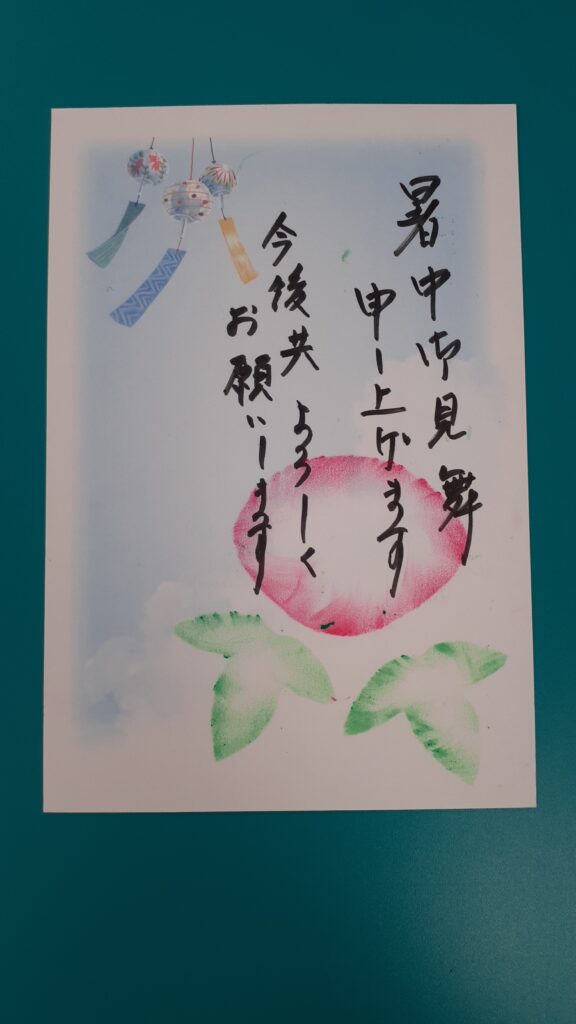 暑中御見舞
申し上げます
今後共よろしく
お願いします